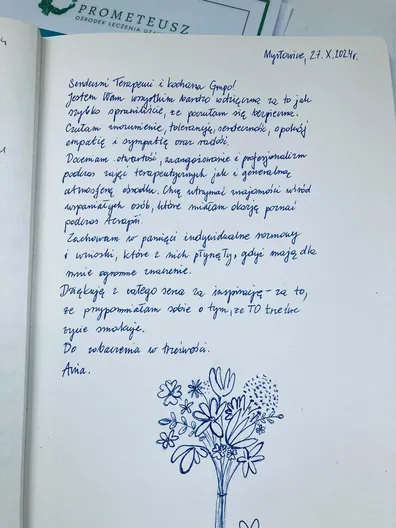 PROMETEUSZ
OŚRODEK LECZENIA
Mysłowice, 27.X.2024r.
Serdeczni Terapeuci i kochana Grupo!
Jestem Wam wszystkim bardzo wdzięczna za to jak
szybko sprawiliście, że poczułam się bezpieczna.
Czułam zrozumienie, tolerancję, serdeczność, spokój
empatię i sympatię oraz radość.
Doceniam otwartość, zaangażowanie i profesjonalizm
podczas zajęć terapeutycznych jak i generalną
atmosferę ośrodka. Chcę utrzymać znajomości wśród
wspaniałych osób, które miałam okazję poznać
podczas terapii.
Zachowam w pamięci indywidualne rozmowy
i wnioski, które z nich płynęły, gdyż mają dla
mnie ogromne znaczenie.
Dziękuję z całego serca za inspirację - za to,
że przypomniałam sobie o tym, że TO trzeźwe
życie smakuje.
Do zobaczenia w trzeźwości.
Ania.